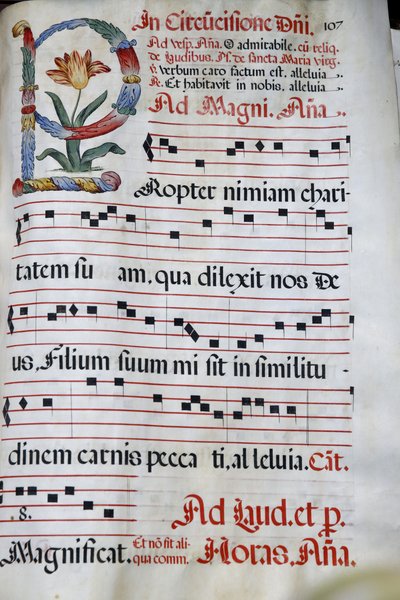 In Circũcisione Dñi. 107
Ad Vesp. Aña. O admirabile. cũ reliq.
de Laudibus. Ps. de sancta Maria virg.
℣. Verbum caro factum est, alleluia.
R. Et habitavit in nobis, alleluia.
Ad Magni. Aña.
PRopter nimiam chari-
tatem su am, qua dilexit nos De
us, Filium suum mi sit in similitu -
dinem carnis pecca ti, al leluia. Cãt.
8.
Ad Laud. et p.
Magnificat. Et nõ sit ali-
qua comm. Horas, Aña.